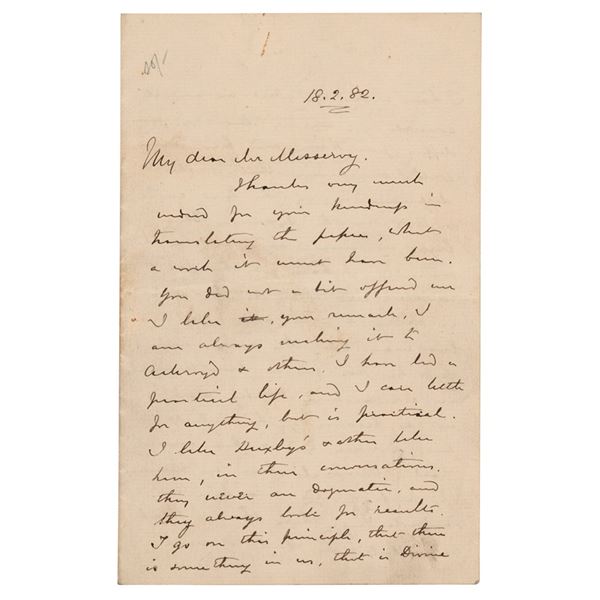 18.2.82.
My dear Mr Messervy.
Thanks very much
indeed for your kindness in
translating the papers, what
a work it must have been.
You did not a bit offend me
I like it, your remark, I
am always making it to
Ackroyd & others. I have led a
practical life, and I care little
for anything, but is practical.
I like Huxley's & other like
him, in their conversations.
they never are dogmatic, and
they always look for results.
I go on this principle, that there
is something in us, that is Divine